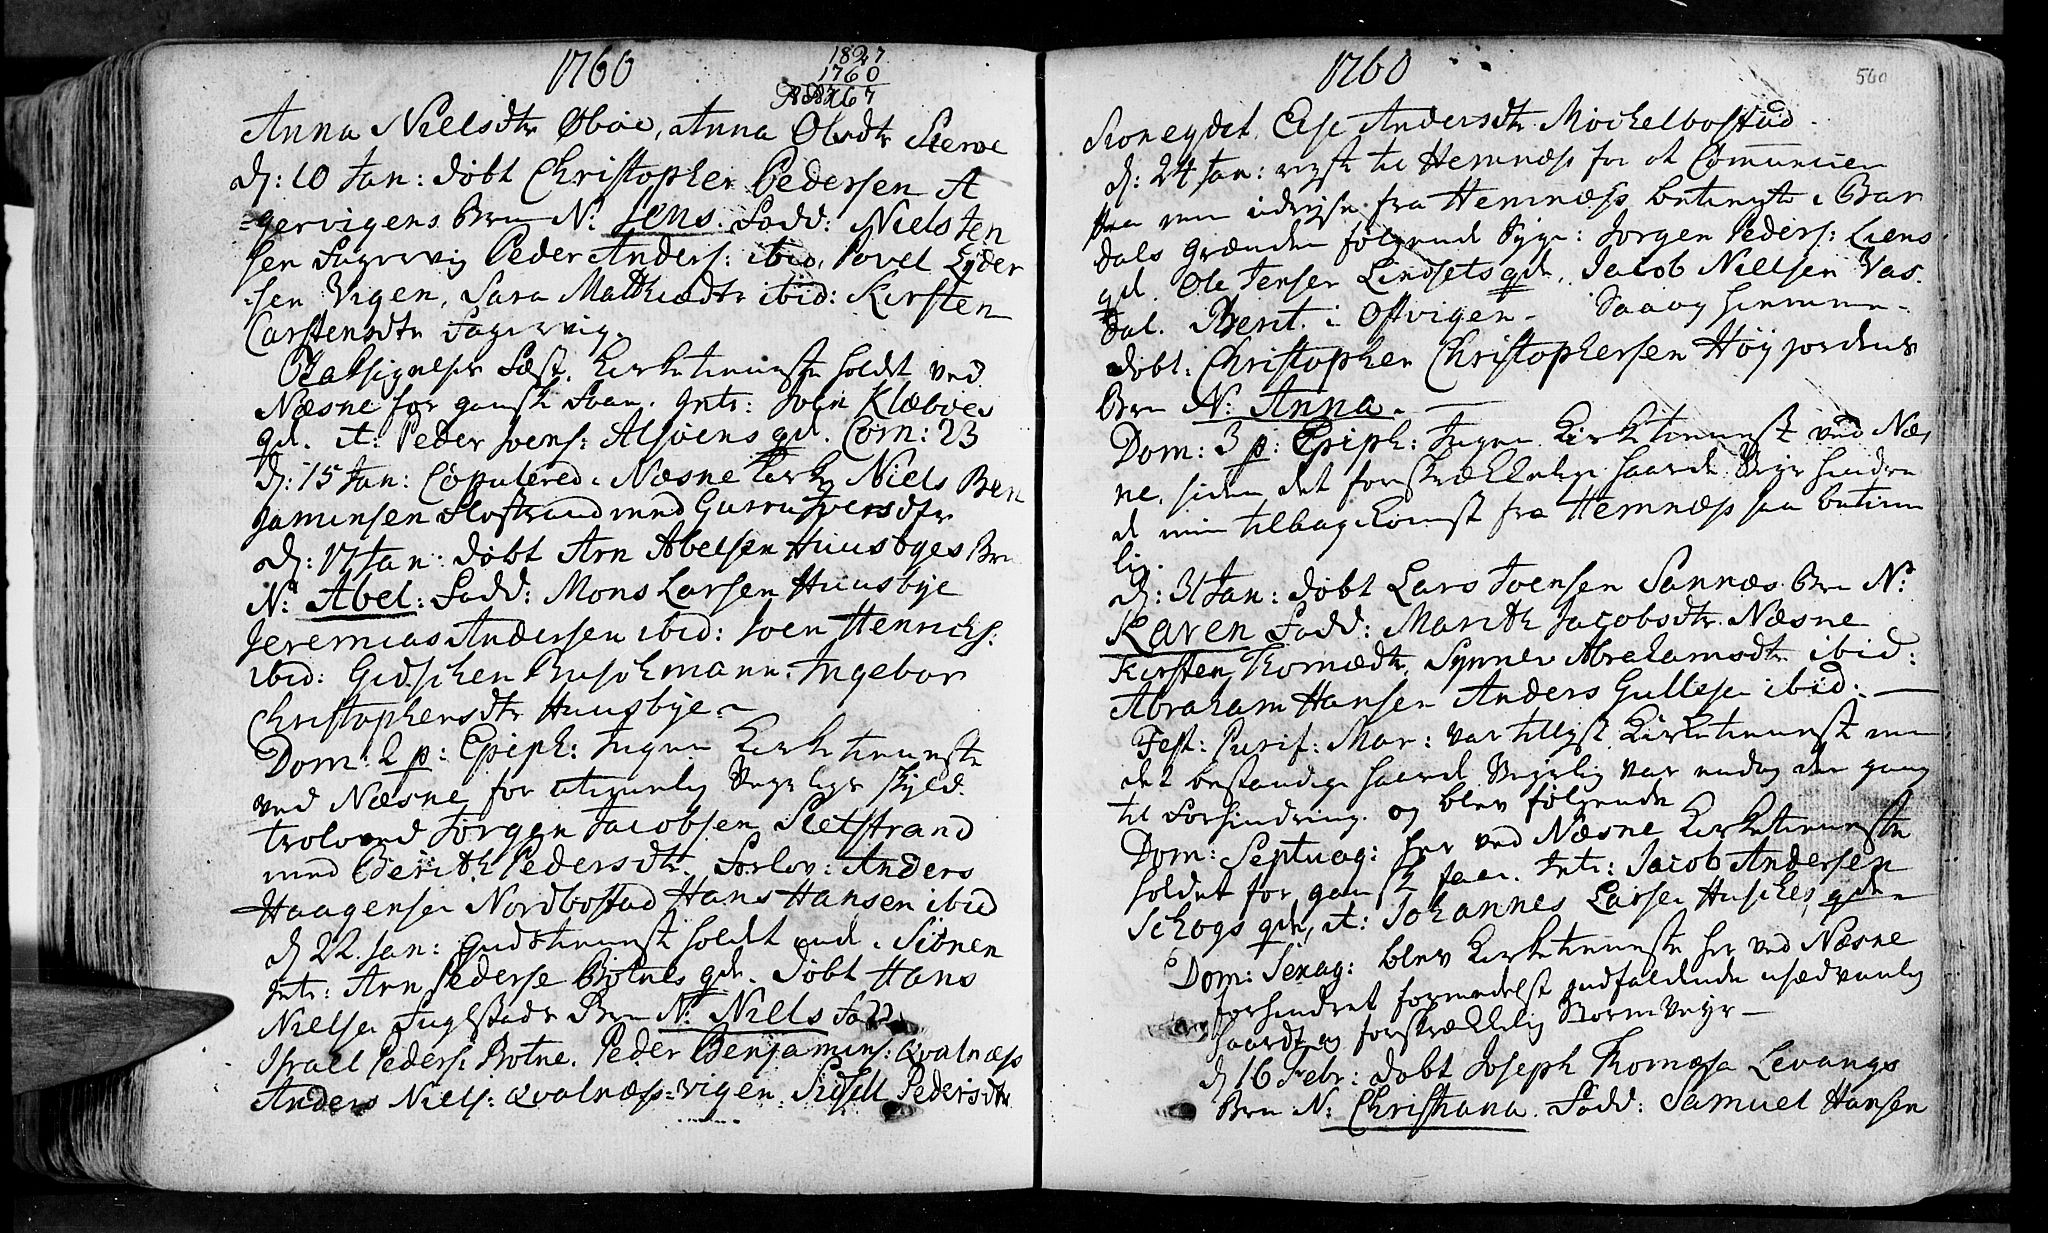 1760
1827
1760
67
Anna Nielsdtr Øbøe, Anna Olsdtr
d: 10 Jan: døbt Christopher Pedersen A
=gervigens Brn N: Jens. Fadd: Niels Jen
sen Fagervig Peder Anders: ibid, Povel Eyder
=sen Vigen, Sara Mathiædtr ibid: Kirsten
Carstensdtr Fagervig.
Kirketienniste holdt ved
Næsne for gansk faa. Intr: Joen Klæboes
qd. it: Peder Joens: Alsøens qd. Com: 23
d: 15 Jan: Copulered i Næsne Kirke Niels Ben
jaminsen Slostrand med Gurru Iversdtr
d: 17 Jan: døbt Arn Abelsen Huusbyes Brn
N: Abel: Fadd: Mons Larsen Huusbye
Jeremias Andersen ibid: Joen Henrichs:
ibid: Gidschen Buschmann. Ingebor
Christophersdtr Huusbye.
Dom: 2 p: Epiph: Ingen Kirketienniste
ved Næsne for utienlig Veyrligs skyld.
troloved Jørgen Jacobsen Sletstrand
med Berith Pedersdtr. Forlov: Anders
Haagensen Nordbostad Hans Hansen ibid
d 22 Jan: Gudstienist holdt ved i
Intr: Arn Pederse Botnes qd. døbt Hans
Nielsen Fuglstads Brn N: Niels Fadd:
Israel Peders: Botne. Peder Benjamins: Qvalnæss
Anders Niels: Qvalnæss=vigen. Sidsell Pedersdtr
1760
560
Elsje Andersdtr Mochelbostad
d: 24 Jan: reyste til Hemnæs for at Comunicere
paa min udreyse fra Hemnæss betiente i Bar
dals Grænden følgende Syge: Jørgen Peders: Liens
qd. Ole Jensen Lindsets qd. Jacob Nielsen Vas
dal. Berit i Ostvigen. Saaog hiemme
døbt: Christopher Christophersen Høyjordens
Brn N: Anna.
Dom: 3 p: Epiph: Ingen Kirketienist ved Næs
ne, siden det forskrækkelige haarde Veyr hindre
de min tilbagekomst fra Hemnæss saa betime
lig.
d: 31 Jan: døbt Lars Joensen Sannæs Brn N:
Karen Fadd: Marith Jacobsdtr Næsne
Kirsten Thomædtr, Synnev Abrahamsdtr ibid:
Abraham Hansen Anders Gullesen ibid:
Fest: Purif: Mar: var tillyst Kirketienist men
det bestandige haarde Veyrlig var endog den gang
til Forhindring. og blev følgende
Dom: Septuag: her ved Næsne Kirketienniste
holdet for gansk faa. Intr: Jacob Andersen
Schogs qd, it: Johannes Larsen qde
Dom: Sexag: blev Kirketienniste her ved Næsne
forhindret formedelst indfaldende usædvanlig
haardt og forskrækkelig Storm Veyr
d 16 Febr: døbt Joseph Thomæsen Levangs
Brn N: Christiana. Fadd: Samuel Hansen